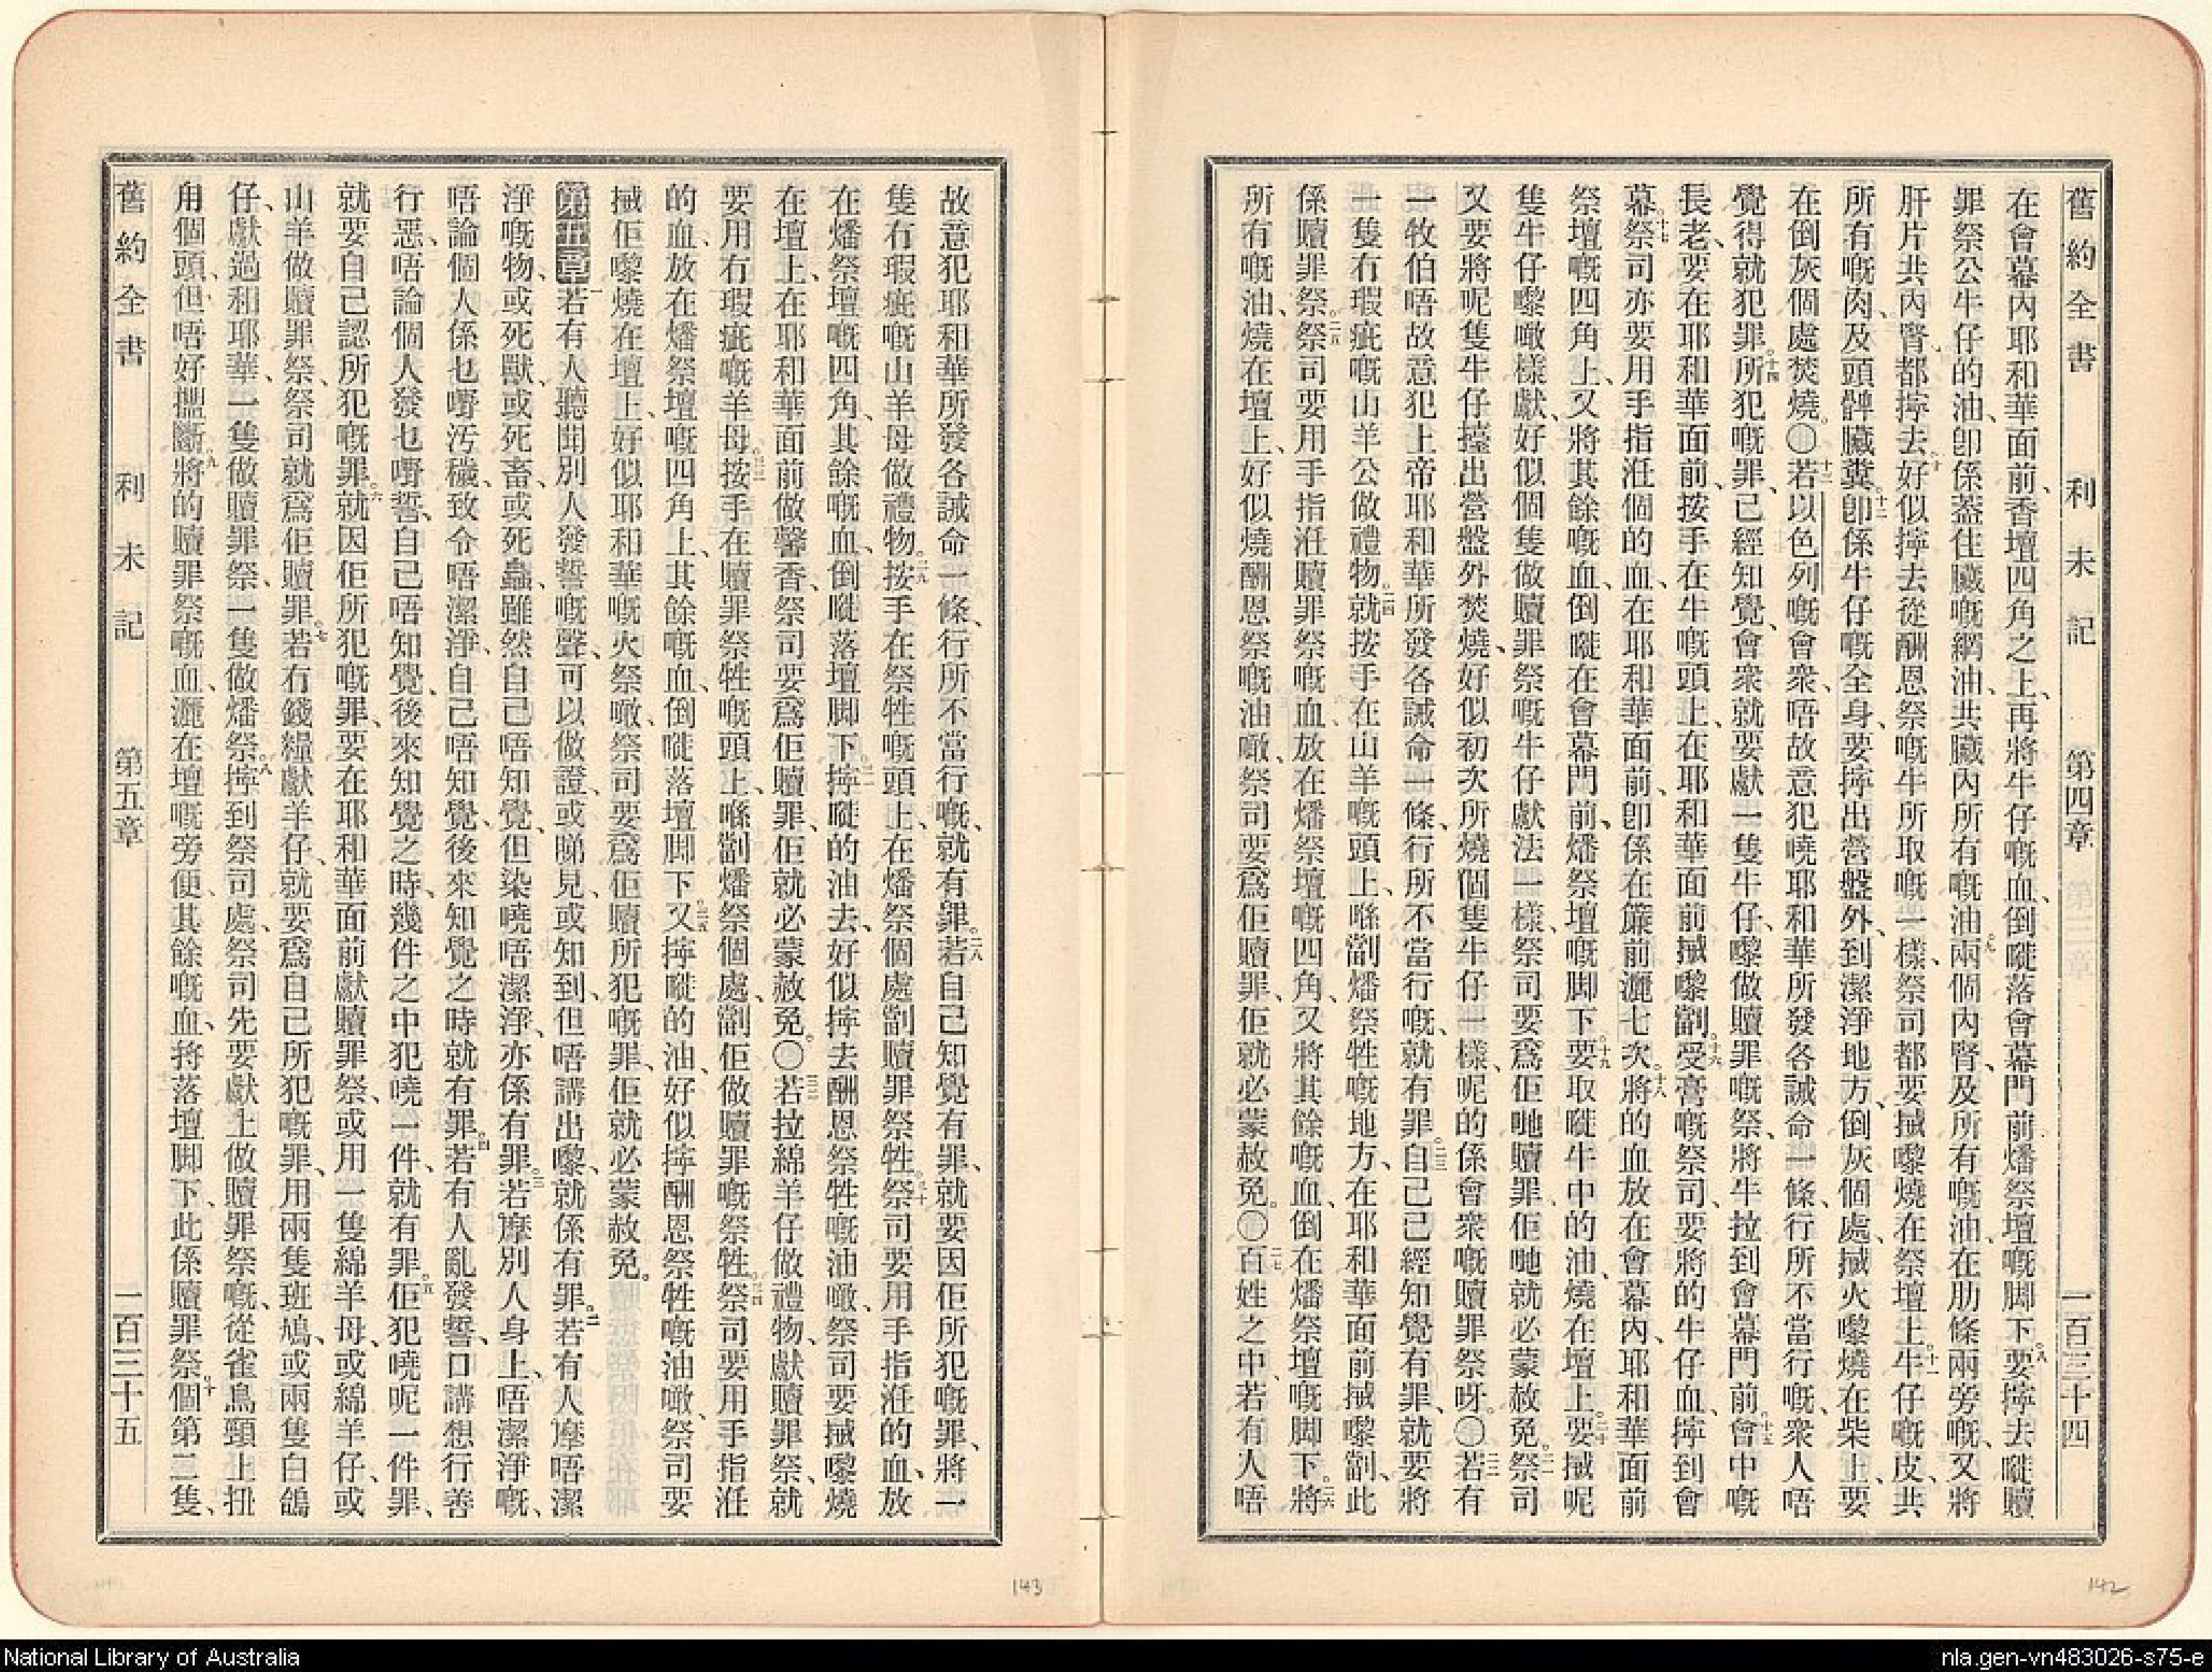 舊約全書　利未記　第四章　一百三十四
在會幕內耶和華面前、香壇四角之上、再將牛仔嘅血、倒嘥落會幕門前燔祭壇嘅脚下。八要擰去嘥贖
罪祭公牛仔的油、卽係蓋住臟嘅網油、共臟內所有嘅油。九兩個內腎、及所有嘅油、在肋條兩旁嘅、又將
肝片共內腎、都擰去。十好似擰去從酬恩祭嘅牛所取嘅一樣、祭司都要搣嚟燒在祭壇上。十一牛仔嘅皮、共
所有嘅肉、及頭髀臟糞。十二卽係牛仔嘅全身、要擰出營盤外、到潔淨地方、倒灰個處、搣火嚟燒在柴上、要
在倒灰個處焚燒。〇十三若以色列嘅會衆、唔故意犯曉耶和華所發各誡命一條、行所不當行嘅、衆人唔
覺得就犯罪。十四所犯嘅罪、已經知覺、會衆就要獻一隻牛仔、嚟做贖罪嘅祭、將牛拉到會幕門前。十五會中嘅
長老、要在耶和華面前、按手在牛嘅頭上、在耶和華面前搣嚟劏。十六受膏嘅祭司、要將的牛仔血、擰到會
幕。十七祭司亦要用手指㴙個的血、在耶和華面前、卽係在簾前灑七次。十八將的血放在會幕內、耶和華面前
祭壇嘅四角上、又將其餘嘅血、倒嘥在會幕門前、燔祭壇嘅脚下。十九要取嘥牛中的油、燒在壇上。二十要搣呢
隻牛仔嚟噉樣獻、好似個隻做贖罪祭嘅牛仔獻法一樣、祭司要爲佢哋贖罪、佢哋就必蒙赦免。二一祭司
又要將呢隻牛仔擡出營盤外焚燒、好似初次所燒個隻牛仔一樣、呢的係會衆嘅贖罪祭呀。〇二二若有
一牧伯唔故意犯上帝耶和華所發各誡命一條、行所不當行嘅、就有罪。二三自己已經知覺有罪、就要將
一隻冇瑕疵嘅山羊公做禮物。二四就按手在山羊嘅頭上、喺劏燔祭牲嘅地方、在耶和華面前搣嚟劏、此
係贖罪祭。二五祭司要用手指㴙贖罪祭嘅血、放在燔祭壇嘅四角、又將其餘嘅血、倒在燔祭壇嘅脚下。二六將
所有嘅油、燒在壇上、好似燒酬恩祭嘅油噉、祭司要爲佢贖罪、佢就必蒙赦免。〇二七百姓之中、若有人唔
故意犯耶和華所發各誡命一條、行所不當行嘅、就有罪。二八若自己知覺有罪、就要因佢所犯嘅罪、將一
隻冇瑕疵嘅山羊母做禮物。二九按手在祭牲嘅頭上、在燔祭個處劏贖罪祭牲。三十祭司要用手指㴙的血、放
在燔祭壇嘅四角、其餘嘅血、倒嘥落壇脚下。三一擰嘥的油去、好似擰去酬恩祭牲嘅油噉、祭司要搣嚟燒
在壇上、在耶和華面前做馨香、祭司要爲佢贖罪、佢就必蒙赦免。〇三二若拉綿羊仔做禮物、獻贖罪祭、就
要用冇瑕疵嘅羊母。三三按手在贖罪祭牲嘅頭上、喺劏燔祭個處、劏佢做贖罪嘅祭牲。三四祭司要用手指㴙
的血、放在燔祭壇嘅四角上、其餘嘅血、倒嘥落壇脚下。三五又擰嘥的油、好似擰酬恩祭牲嘅油噉、祭司要
搣佢嚟燒在壇上、好似耶和華嘅火祭噉、祭司要爲佢贖所犯嘅罪、佢就必蒙赦免。
第五章一若有人聽聞別人發誓嘅聲、可以做證、或睇見、或知到、但唔講出嚟、就係有罪。二若有人摩唔潔
淨嘅物、或死獸、或死畜、或死蟲、雖然自己唔知覺、但染曉唔潔淨、亦係有罪。三若摩別人身上、唔潔淨嘅、
唔論個人係乜嘢汚穢、致令唔潔淨、自己唔知覺、後來知覺之時就有罪。四若有人亂發誓、口講想行善
行惡、唔論個人發乜嘢誓、自己唔知覺、後來知覺之時、幾件之中犯曉一件、就有罪。五佢犯曉呢一件罪、
就要自己認所犯嘅罪。六就因佢所犯嘅罪、要在耶和華面前獻贖罪祭、或用一隻綿羊母、或綿羊仔、或
山羊做贖罪祭、祭司就爲佢贖罪。七若冇錢糧獻羊仔、就要爲自己所犯嘅罪、用兩隻班鳩、或兩隻白鴿
仔、獻過和耶華、一隻做贖罪祭、一隻做燔祭。八擰到祭司處、祭司先要獻上做贖罪祭嘅、從雀鳥頸上扭
用個頭、但唔好搵斷。九將的贖罪祭嘅血、灑在壇嘅旁便、其餘嘅血、捋落壇脚下、此係贖罪祭。十個第二隻、
舊約全書　利未記　第五章　一百三十五
143
142
National Library of Australia
nla.gen-vn483026-s75-e